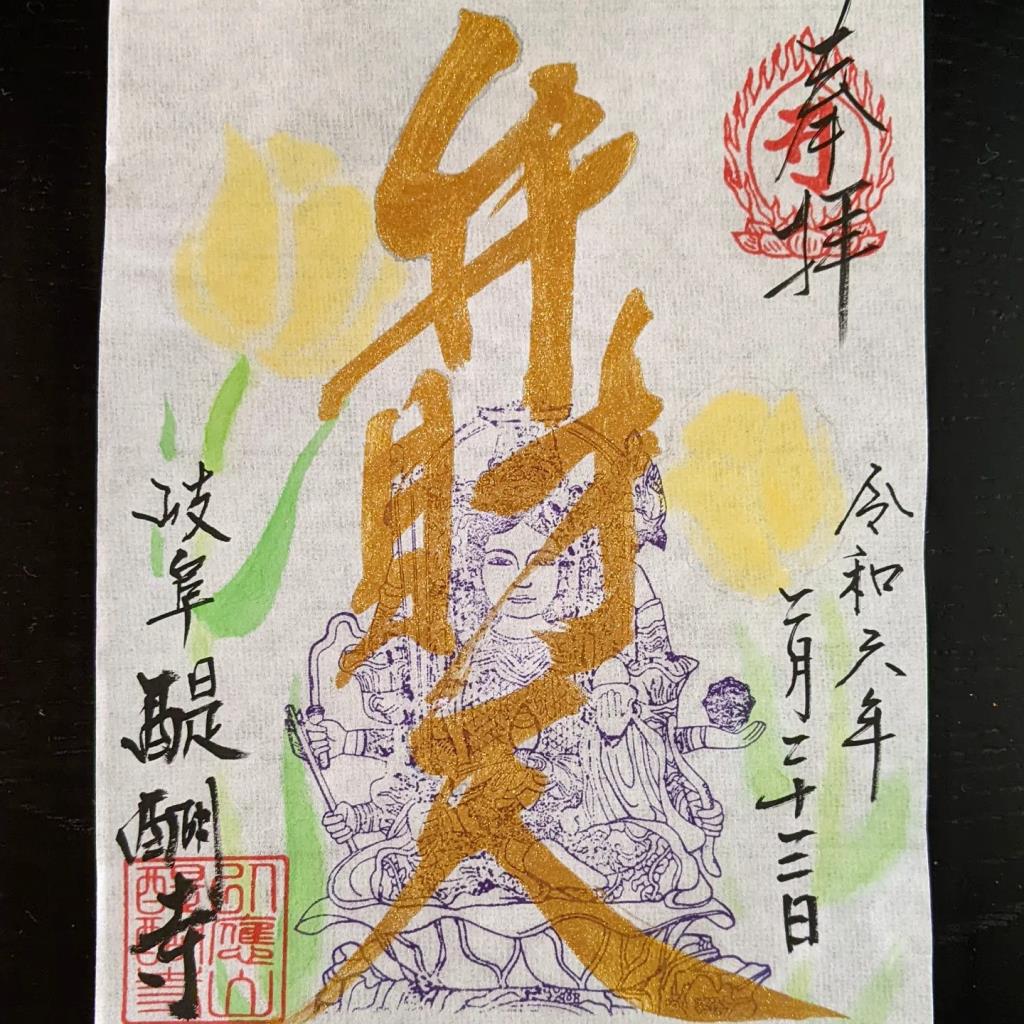 奉拝
令和六年
二月二十三日
弁財天
岐阜 醍醐寺